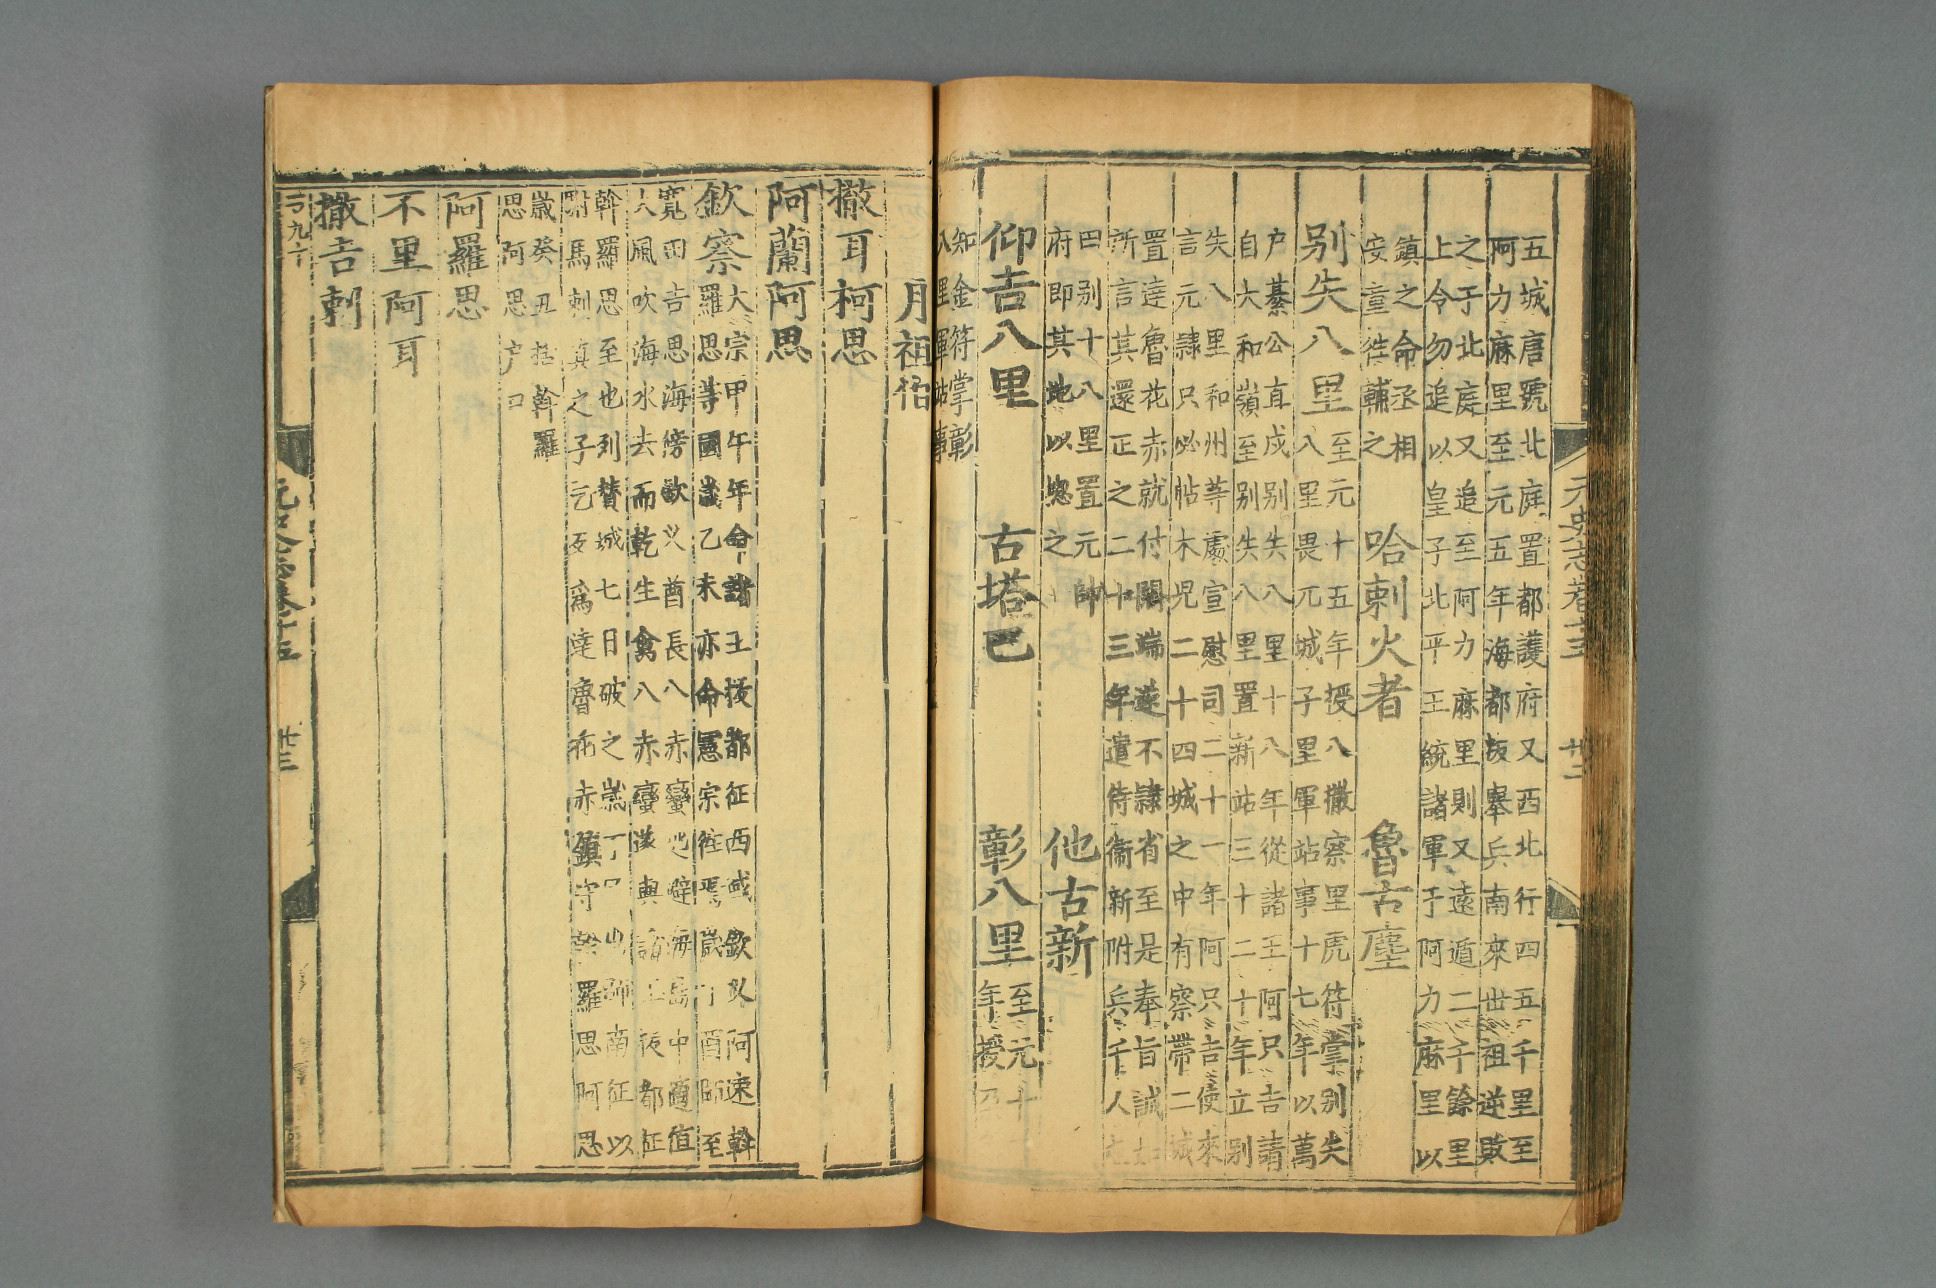 元史志卷十五 廿二
五城唐號北庭置都護府又西北行四五千里至
阿力麻里至元五年海都叛舉兵南來世祖逆敗
之于北庭又追至阿力麻里則又遠遁二千餘里
上令勿追以皇子北平王統諸軍于阿力麻里以
鎮之命丞相
安童徃輔之
哈剌火者 魯古塵
别失八里
至元十五年授八撒察里虎符掌别失
八里畏兀城子里軍站事十七年以萬
户綦公直戍别失八里十八年從諸王阿只吉請
自大和嶺至别失八里置新站三十二十年立别
失八里和州等處宣慰司二十一年阿只吉使來
言元隸只必帖木兒二十四城之中有察帶二城
置達魯花赤就付闊端遂不隸省至是奉旨誠如
所言其還正之二十三年遣侍衛新附兵千人屯
田别十八里置元帥
府即其地以緫之
他古新
仰吉八里 古塔巴 彰八里
至元十
年授
知金符掌彰
八里軍站事
月祖伯
撒耳柯思
阿蘭阿思
欽察
大宗甲午年命諸王拔都征西域欽乂阿速斡
羅思等國歲乙未亦命憲宗徃焉歲丁酉師至
寬田吉思海傍欽乂酋長八赤蠻迯避海島中適值
大風吹海水去而乾生禽八赤蠻遂與諸王拔都征
斡羅思至也列賛城七日破之歲丁巳出師南征以
駙馬剌真之子乞歹爲達魯花赤鎮守斡羅思阿思
歲癸丑括斡羅
思阿思户口
阿羅思
不里阿耳
撒吉剌
元史志卷十五 廿三